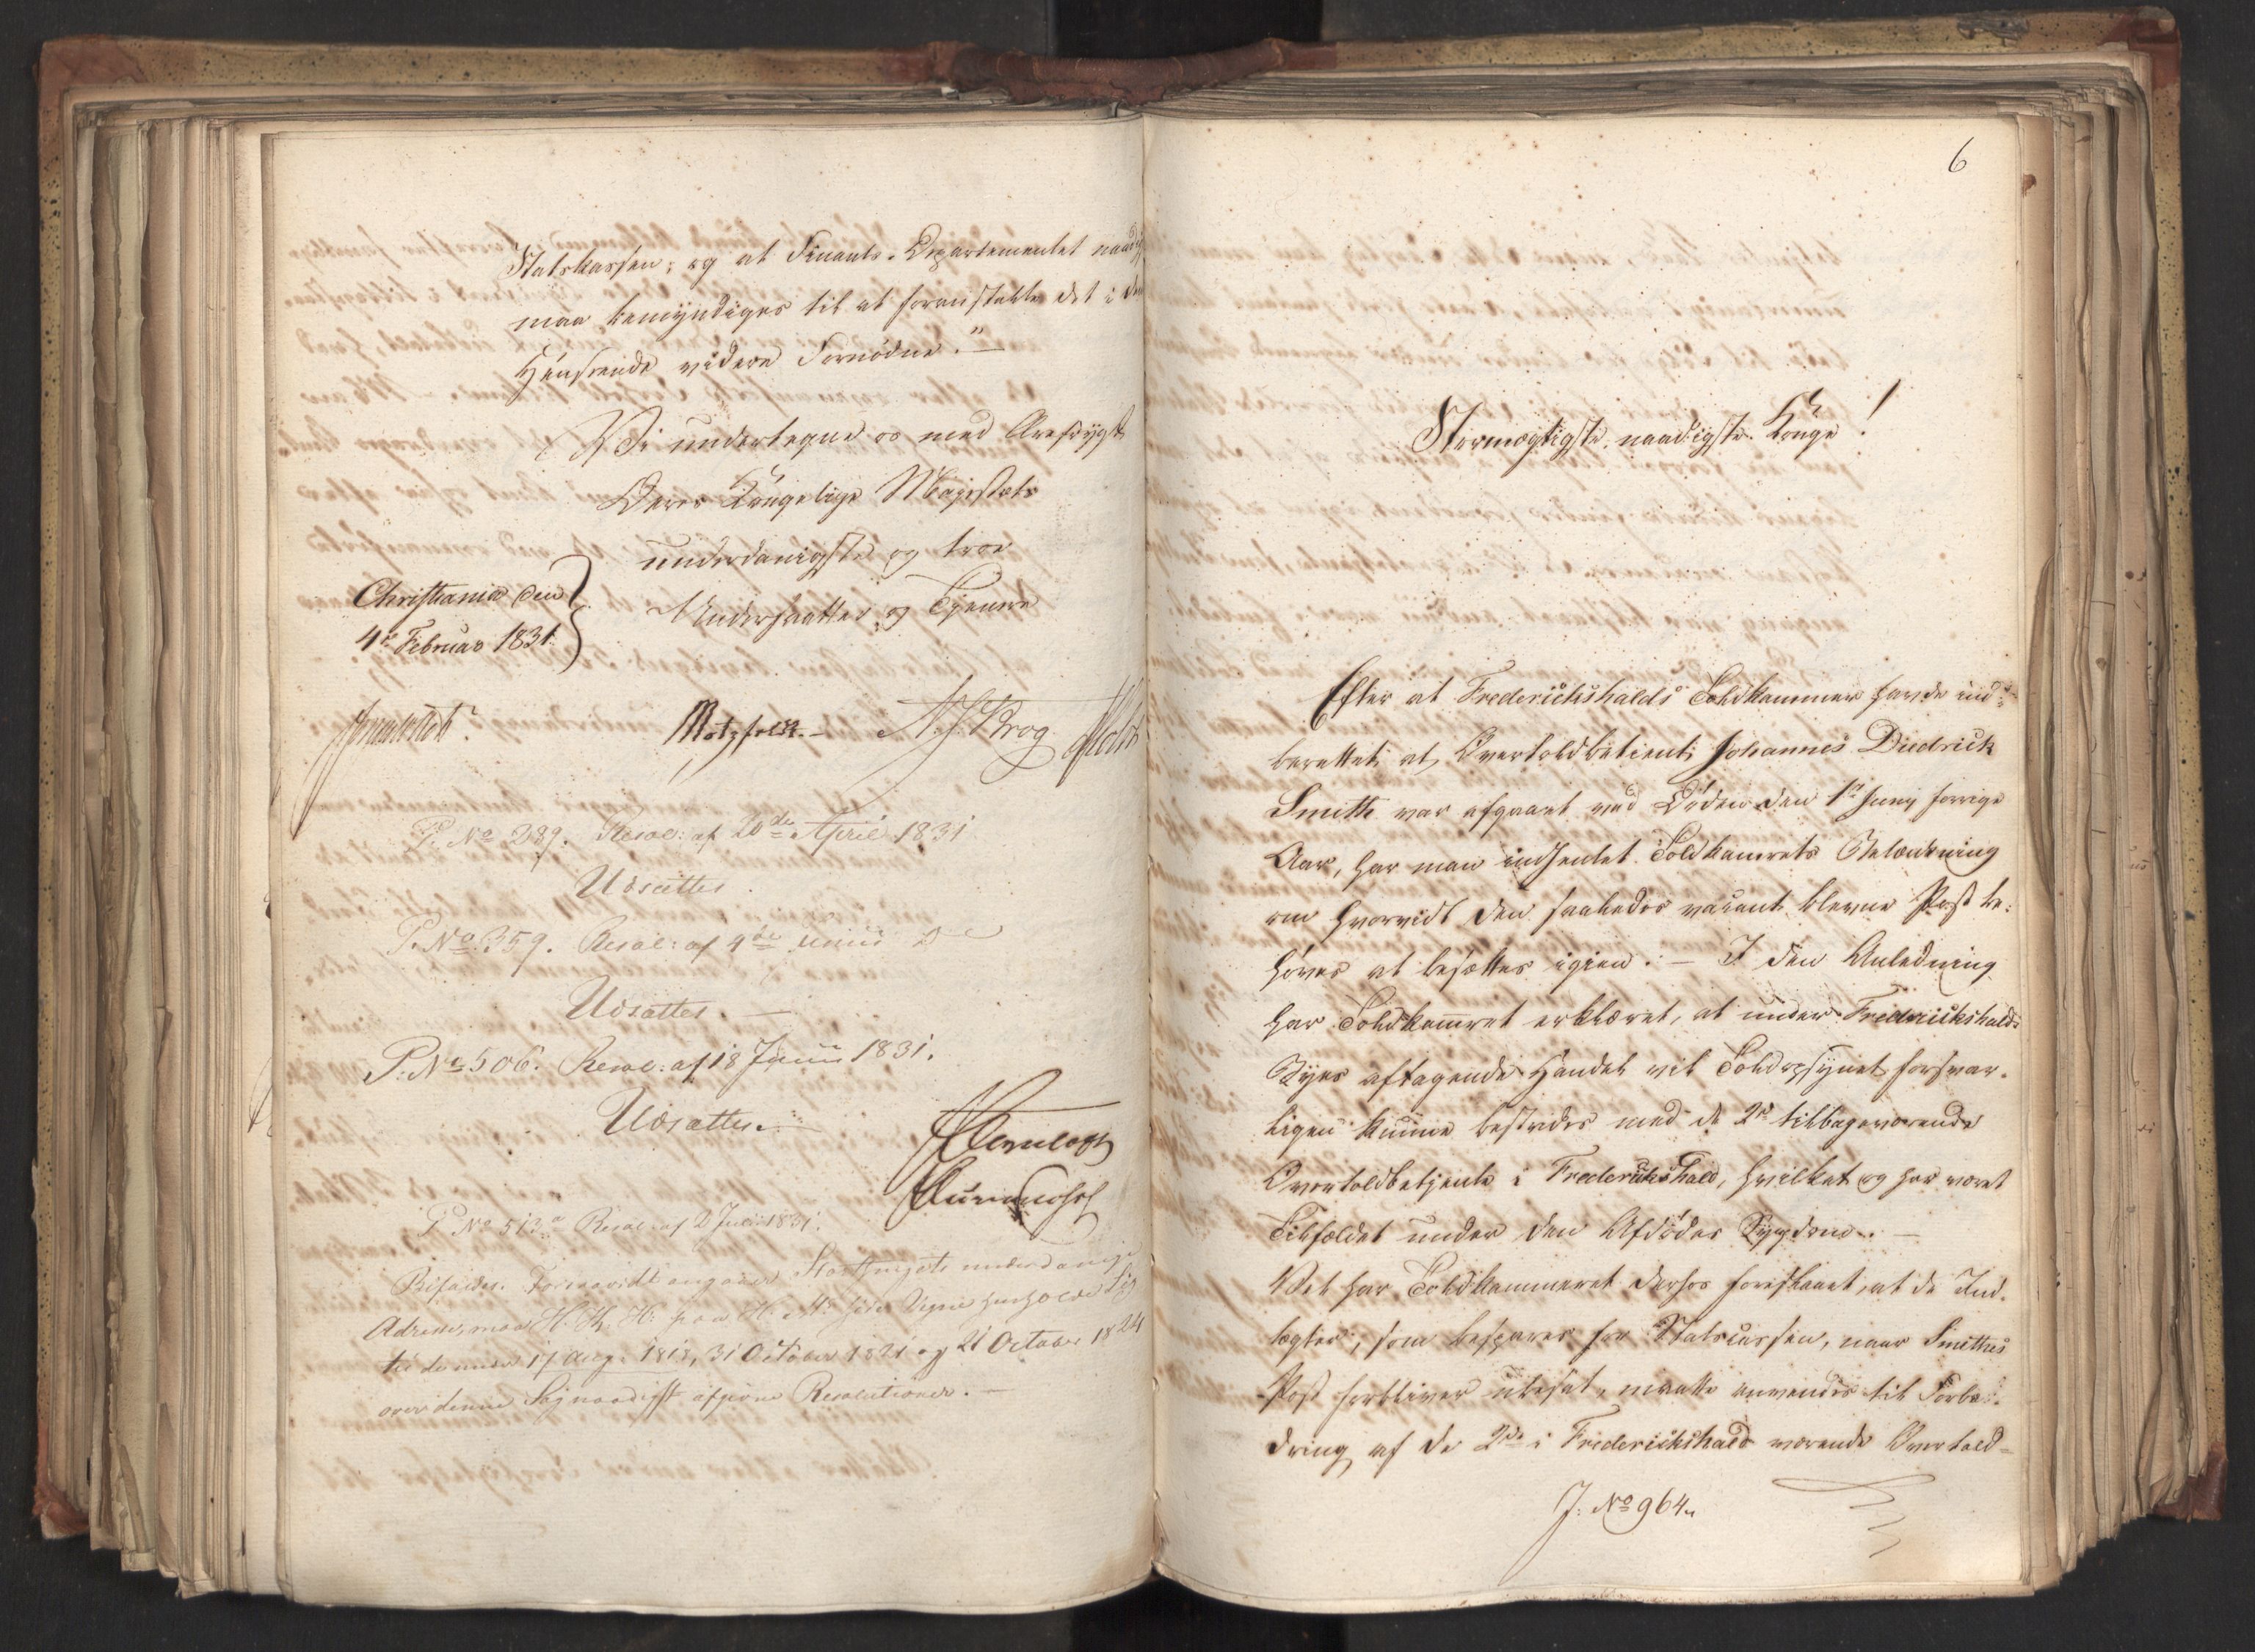 Statskassen; og at Finants-Departementet naadigst
maa bemyndiges til at foranstalte det i den
Henseende videre Fornødne." —
Vi undertegne os med Ærefrygt
Deres Kongelige Majestæts
underdanigste og troe
Undersaatter og Tjenere
Christiania den
4de Februar 1831.
Motzfeldt. — N. J. Krog Holst
P. No 289. Resol: af 20de April 1831
Udsættes.
P. No 359. Resol: af 4de Junii
Udsættes. —
P. No 506. Resol: af 18 Junii 1831.
Udsættes. —
P No 513a Resol: af 2 Juli 1831.
Bifaldes. Forsaavidt angaaer Storthingets underdanige
Adresse, maa H. K. H. paa H. M. Vegne henholde Sig
til de under 17 Aug: 1818, 31 October 1821 og 21 October 1824
over denne Sag naadigst afgivne Resolutioner. —
6
Stormægtigste, naadigste Konge!
Efter at Frederichshalds Toldkammer havde ind-
berettet, at Overtoldbetient Johannes Diedrick
Smith var afgaaet ved Døden den 1ste Juny forrige
Aar, har man indhentet Toldkamrets Betænkning
om hvorvidt den saaledes vacant blevne Post be-
høves at besættes igien. — I den Anledning
har Toldkamret erklæret, at under Fredrickshalds
Byes aftagende Handel vil Toldopsynet forsvar-
ligen kunne bestrides med de 2de tilbageværende
Overtoldbetjente i Frederikshald, hvilket og har været
Tilfældet under den Afdødes Sygdom. —
Det har Toldkammeret derhos foreslaaet, at de Ind-
tægter, som bespares for Statscassen, naar Smiths
Post forbliver ubesat, maatte anvendes til Forbe-
dring af de 2de i Frederickshald værende Overtold-
J: No 964.